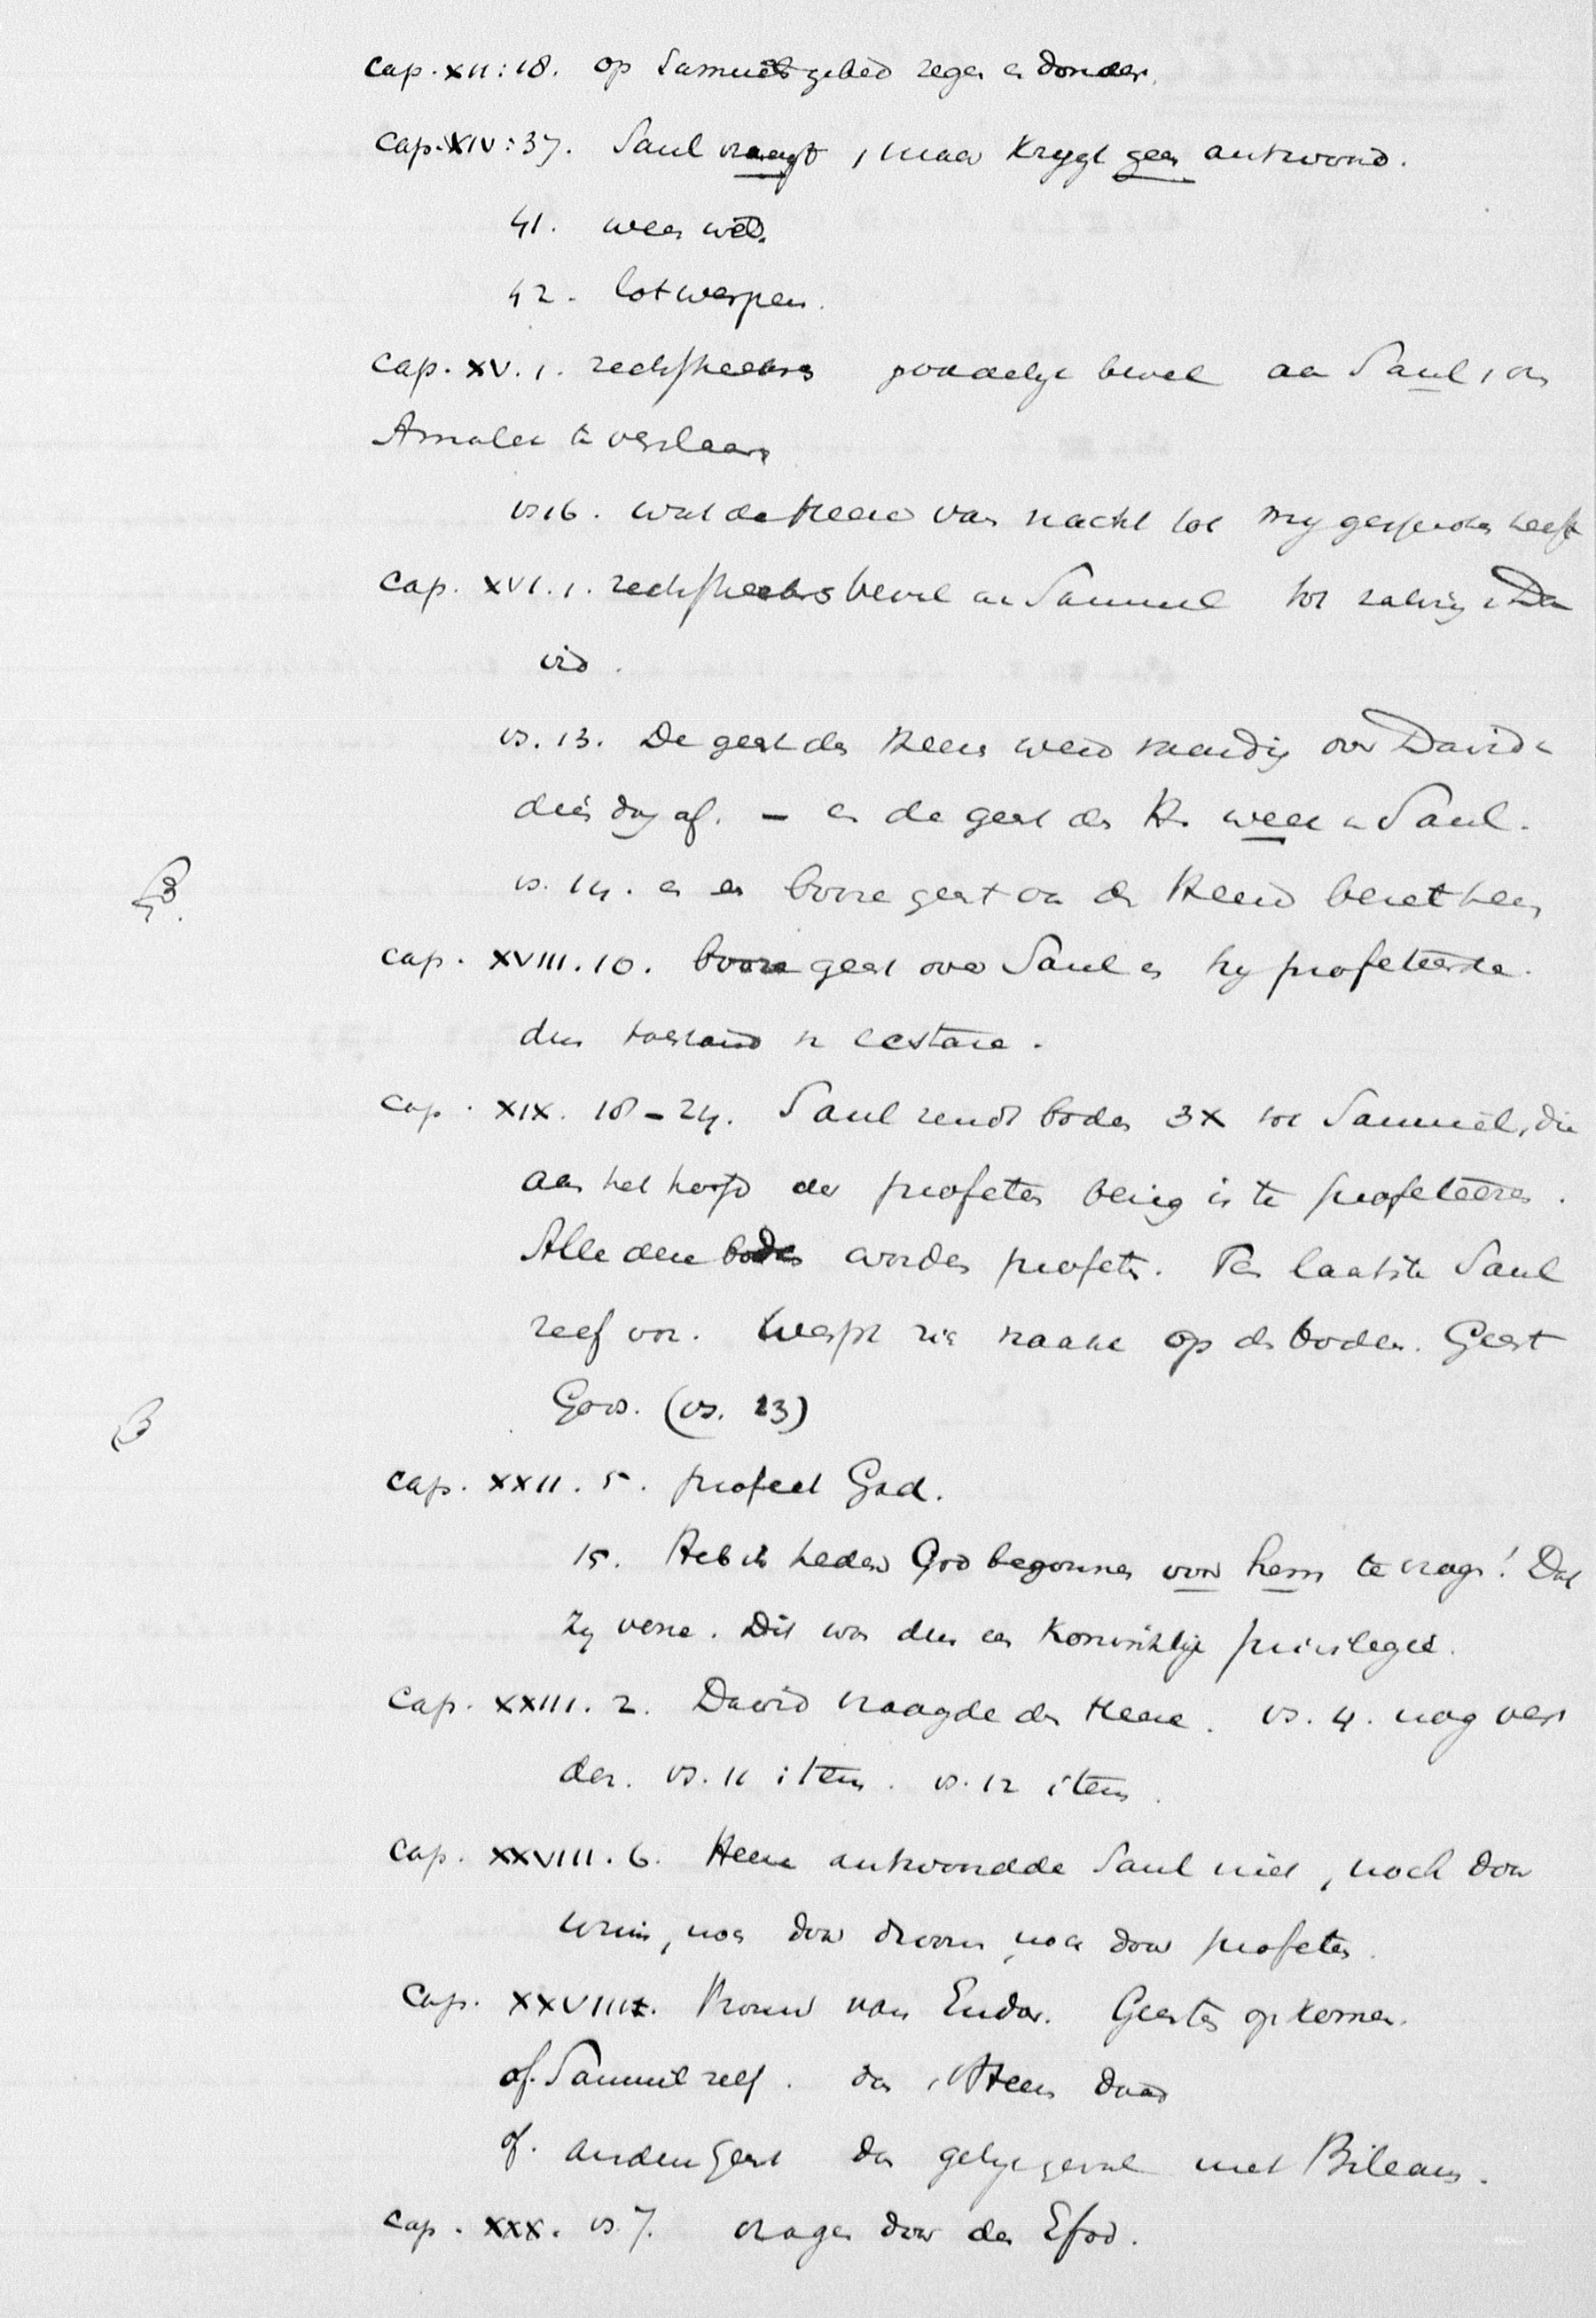 cap. XII:18. op Samuëls gebed regen en donder.
cap. XIV:37. Saul vraagt, maar krygt geen antwoord.
41. weer wel.
42. lotwerpen.
cap. XV. 1. rechtstreeks goddelyk bevel aan Saul, om
Amalek te verslaan
vs 16. wat de Heere van nacht tot my gesproken heeft
cap. XVI. 1. rechtstreeks bevel aan Samuel tot zalving v Da
vid.
vs. 13. De geest des Heeren werd vaardig over David v
dien dag af. – en de geest des H. week v Saul.
vs. 14. en een booze geest van den Heere bezet hem
cap. XVIII. 10. booze geest over Saul en hy profeteerde.
dus toestand v extase.
cap. XIX. 18–24. Saul zendt boden 3x tot Samuël, die
aan het hoofd der profeten bezig is te profeteeren.
Alle deze boden worden profeten. Ten laatste Saul
zelf ook. Werpt zich naakt op den bodem. Geest
Gods. (vs. 23)
cap. XXII. 5. profeet Gad.
15. Heb ik heden God begonnen voor hem te vragen! Dat
zy verre. Dit was dus een Koninklyk privilegie.
cap. XXIII. 2. David vraagde den Heere. vs. 4. nog ver
der. vs. 11 item. vs. 12 item.
cap. XXVIII. 6. Heere antwoordde Saul niet, noch door
urim, noch door droom, noch door profeten.
cap. XXVIII. Vrouw van Endor. Geesten opkomen.
of. Samuel zelf. dan Heeren daad
of. andere geest dan gelyk geval met Bileam.
cap. XXX. vs 7. vragen door den Efod.